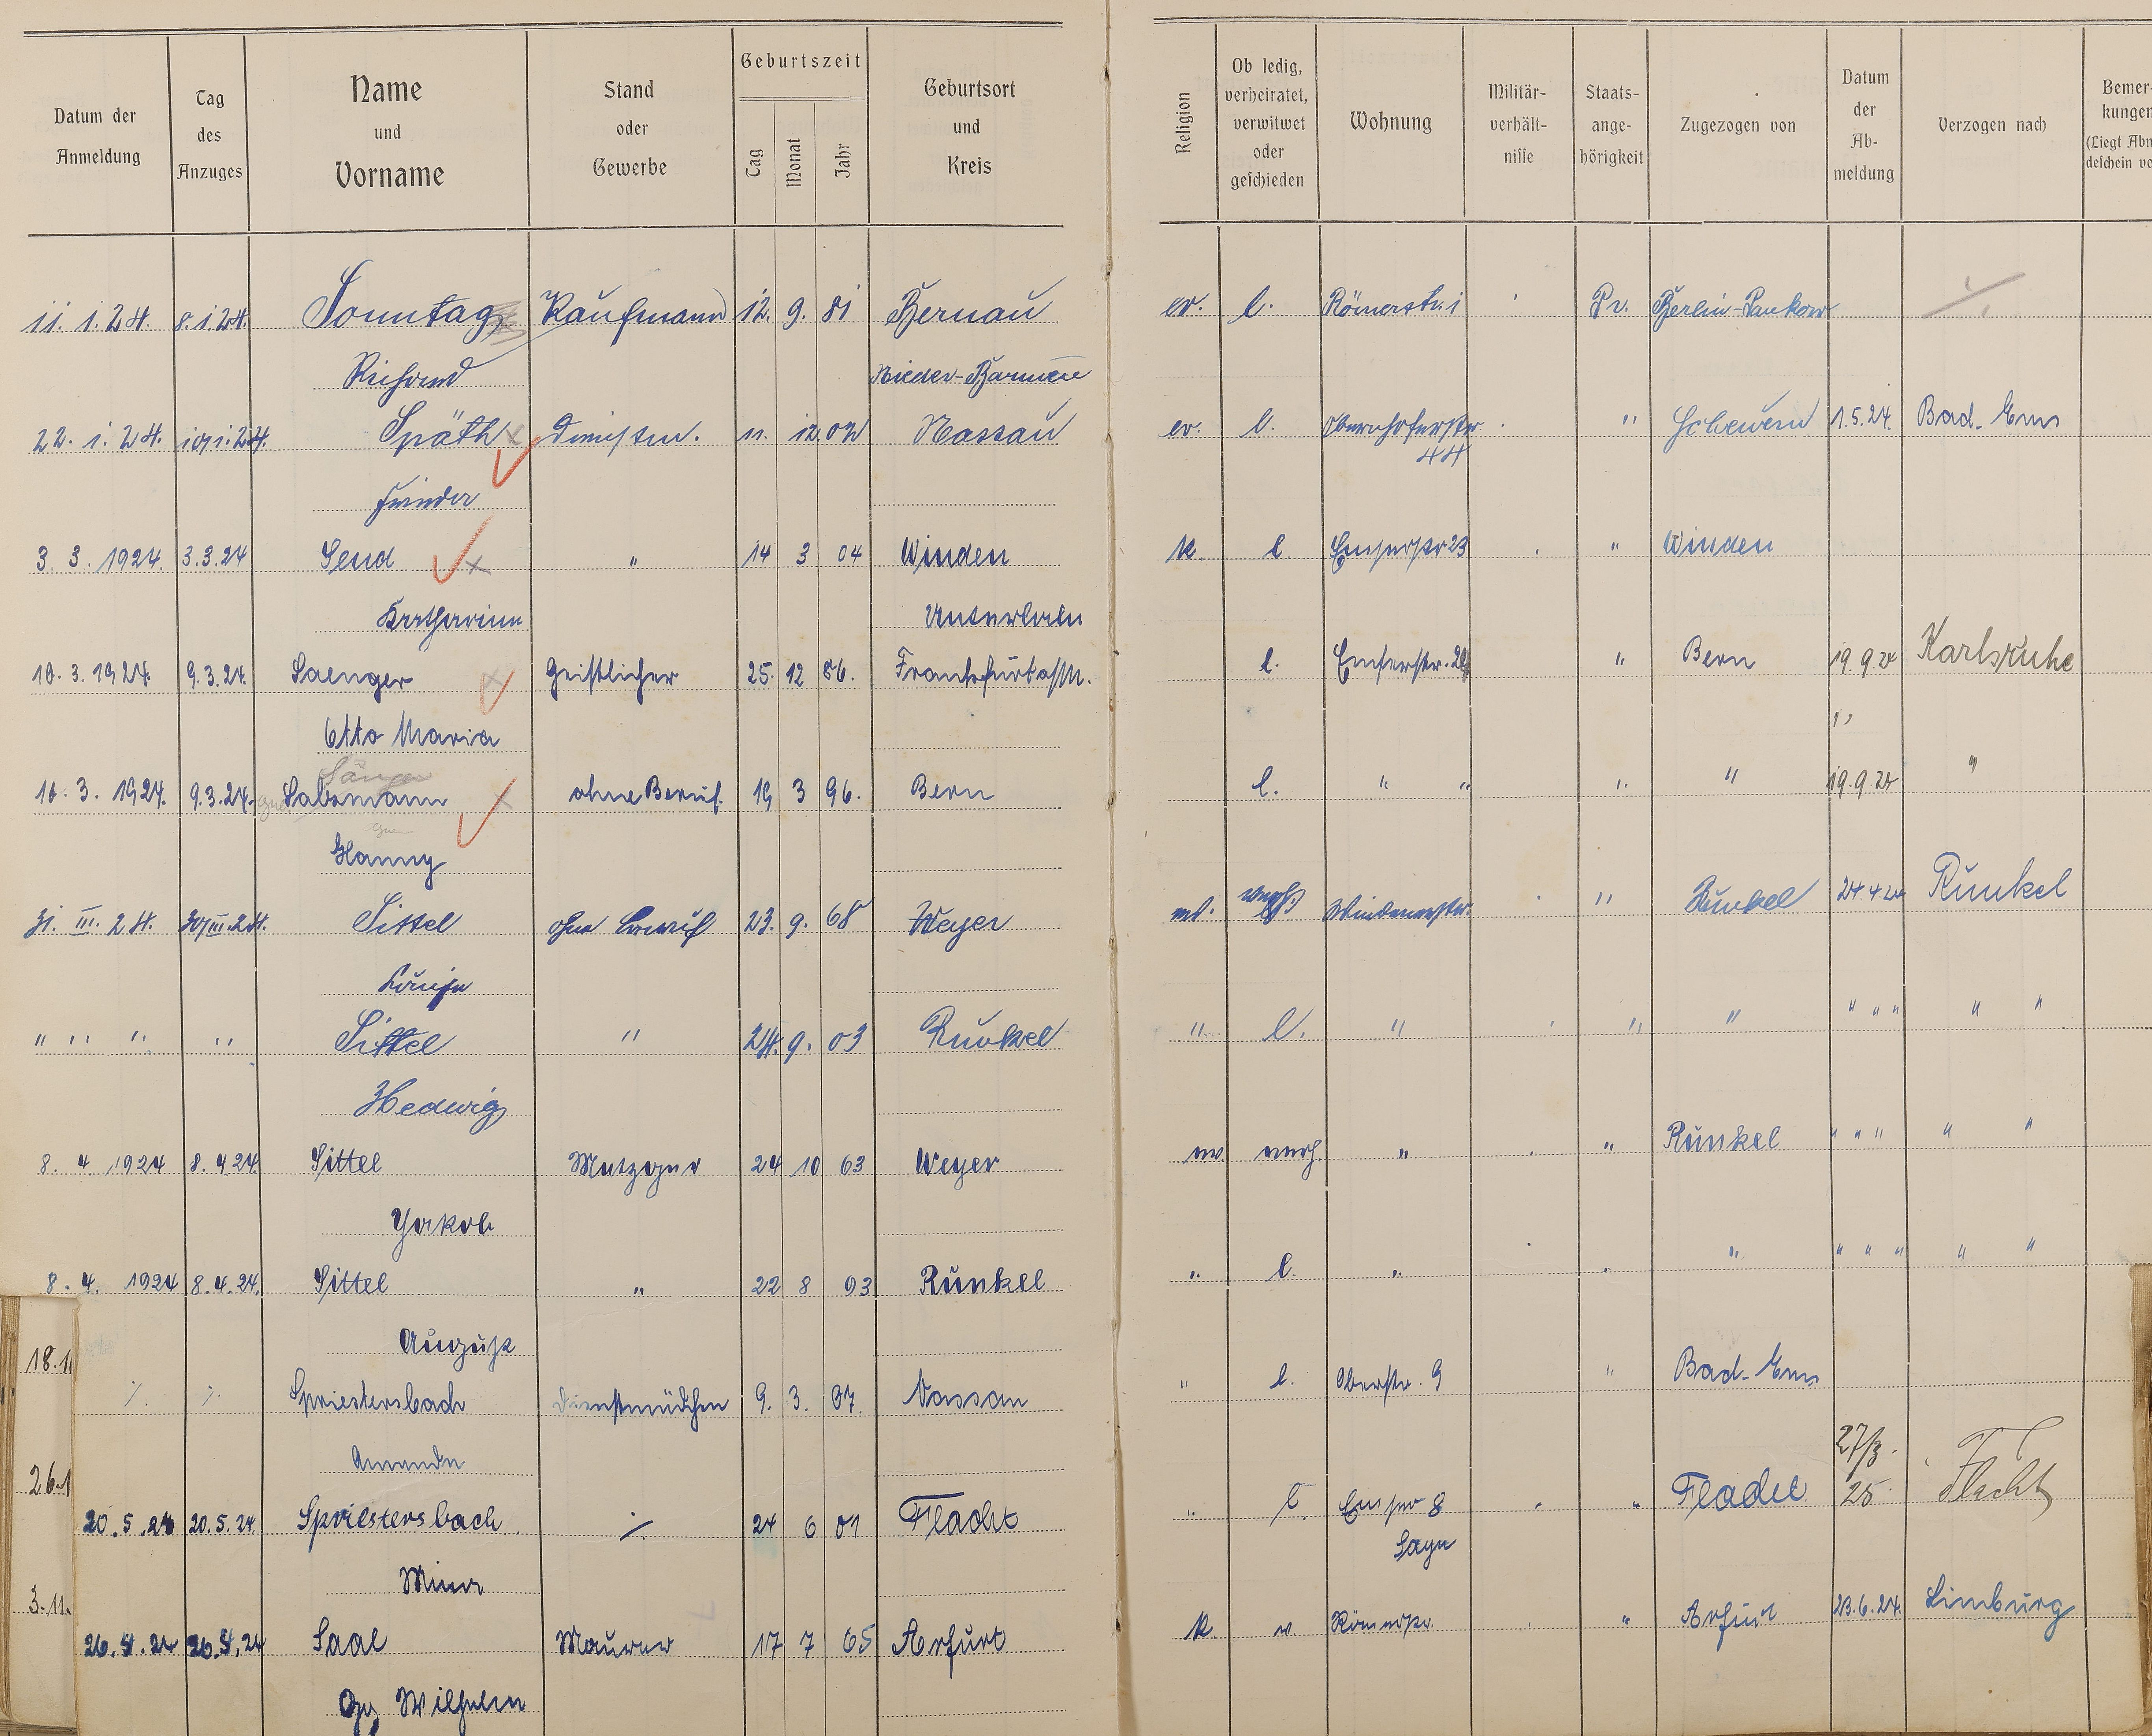 Datum der Anmeldung
Tag des Anzuges
Name und Vorname
Stand oder Gewerbe
Geburtszeit
Tag
Monat
Jahr
Geburtsort und Kreis
Religion
Ob ledig, verheiratet, verwitwet oder geschieden
Wohnung
Militär-verhält-nisse
Staats-ange-hörigkeit
Zugezogen von
Datum der Ab-meldung
Verzogen nach
Bemer-kungen
(Liegt Abm
11. 1. 24. 8. 1. 24. Sonntag Kaufmann 12. 9. 81 Bernau ev. l. Römerstr. 1 Pr. Berlin-Pankow
Richard Nieder-Barnim
22. 1. 24. Späth 11. 12. 02 Nassau ev. l. Obernhoferstr. 44 " Scheuern 1.5.24. Bad-Ems
3 3. 1924. 3.3.24 Send " 14 3 04 Winden k. l. Emserstr 23 " Winden
Katharina Unterlahn
10. 3. 1924. 9.3.24. Saenger Geistlicher 25. 12 86. Frankfurt a/M. l. Emserstr. " Bern 19.9.24 Karlsruhe
Otto Maria "
Sänger
10. 3. 1924. 9.3.24. Salzmann ohne Beruf. 19 3 96. Bern l. " " " " 19.9.24 "
Hanny
31. III. 24. 30/III.24. Sittel ohne Beruf 23. 9. 68 Weyer ev. Windenerstr. " Runkel 24.4.24 Runkel
Luise
" " " " Sittel " 24. 9. 03 Runkel " l. " " " " " " " "
Hedwig
8. 4. 1924 8. 4 24. Sittel Metzger 24 10 63 Weyer ev. verh. " " Runkel " " " " "
Jakob
8. 4. 1924 8. 4. 24. Sittel " 22 8 93 Runkel " l. " " " " " " " "
August
18.1
Spriestersbach Dienstmädchen 9. 3. 07. Nassau " l. Oberstr. 9 " Bad-Ems
Amanda
26.1
20. 5. 24 20. 5. 24. Spriestersbach 24 6 01 Flacht " l. Emser 8 " Flacht 27/3. 25. Flacht
Mina
3.11.
26. 5. 24 26. 5. 24 Saal Maurer 17 7 65 Arfurt k. v. Römerstr. " Arfurt 23.6.24. Limburg
Gg Wilhelm